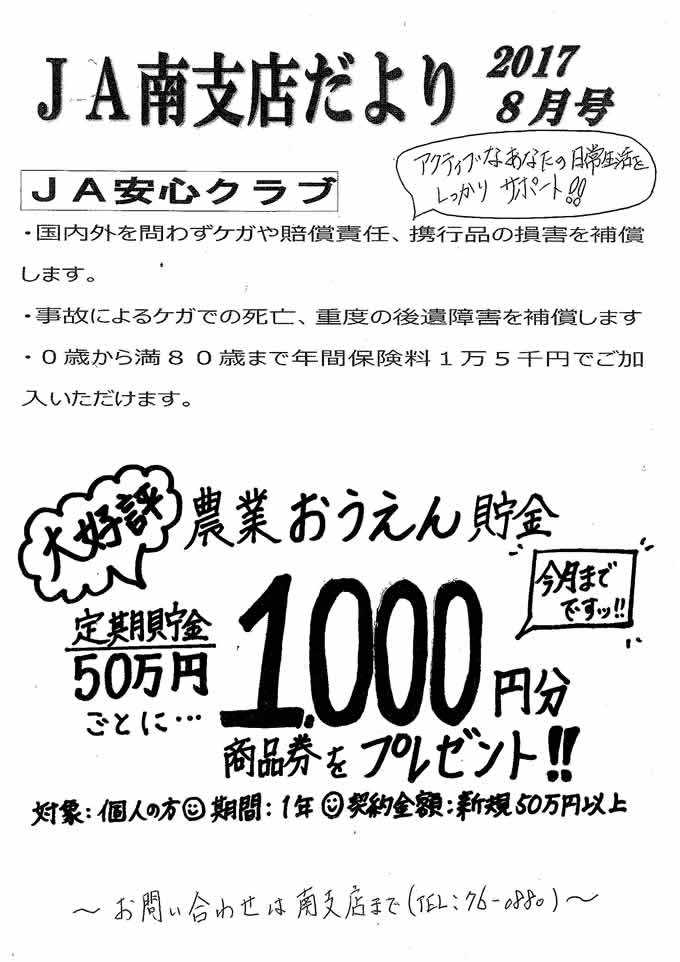 JA南支店だより
2017
8月号
アクティブなあなたの日常生活を
しっかり サポート!!
JA安心クラブ
・国内外を問わずケガや賠償責任、携行品の損害を補償
します。
・事故によるケガでの死亡、重度の後遺障害を補償します
・０歳から満８０歳まで年間保険料１万５千円でご加
入いただけます。
大好評
農業おうえん貯金
今月まで
ですッ!!
定期貯金
50万円
ごとに…
1.000円分
商品券をプレゼント!!
対象:個人の方☺期間:1年☺契約金額:新規50万円以上
～お問い合わせは南支店まで(TEL:76-0880)～